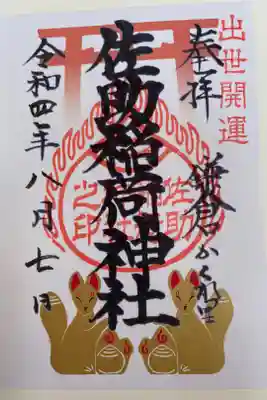 出世開運
奉拝
鎌倉かくれ里
佐助稲荷神社
令和四年八月七日
佐助
之印